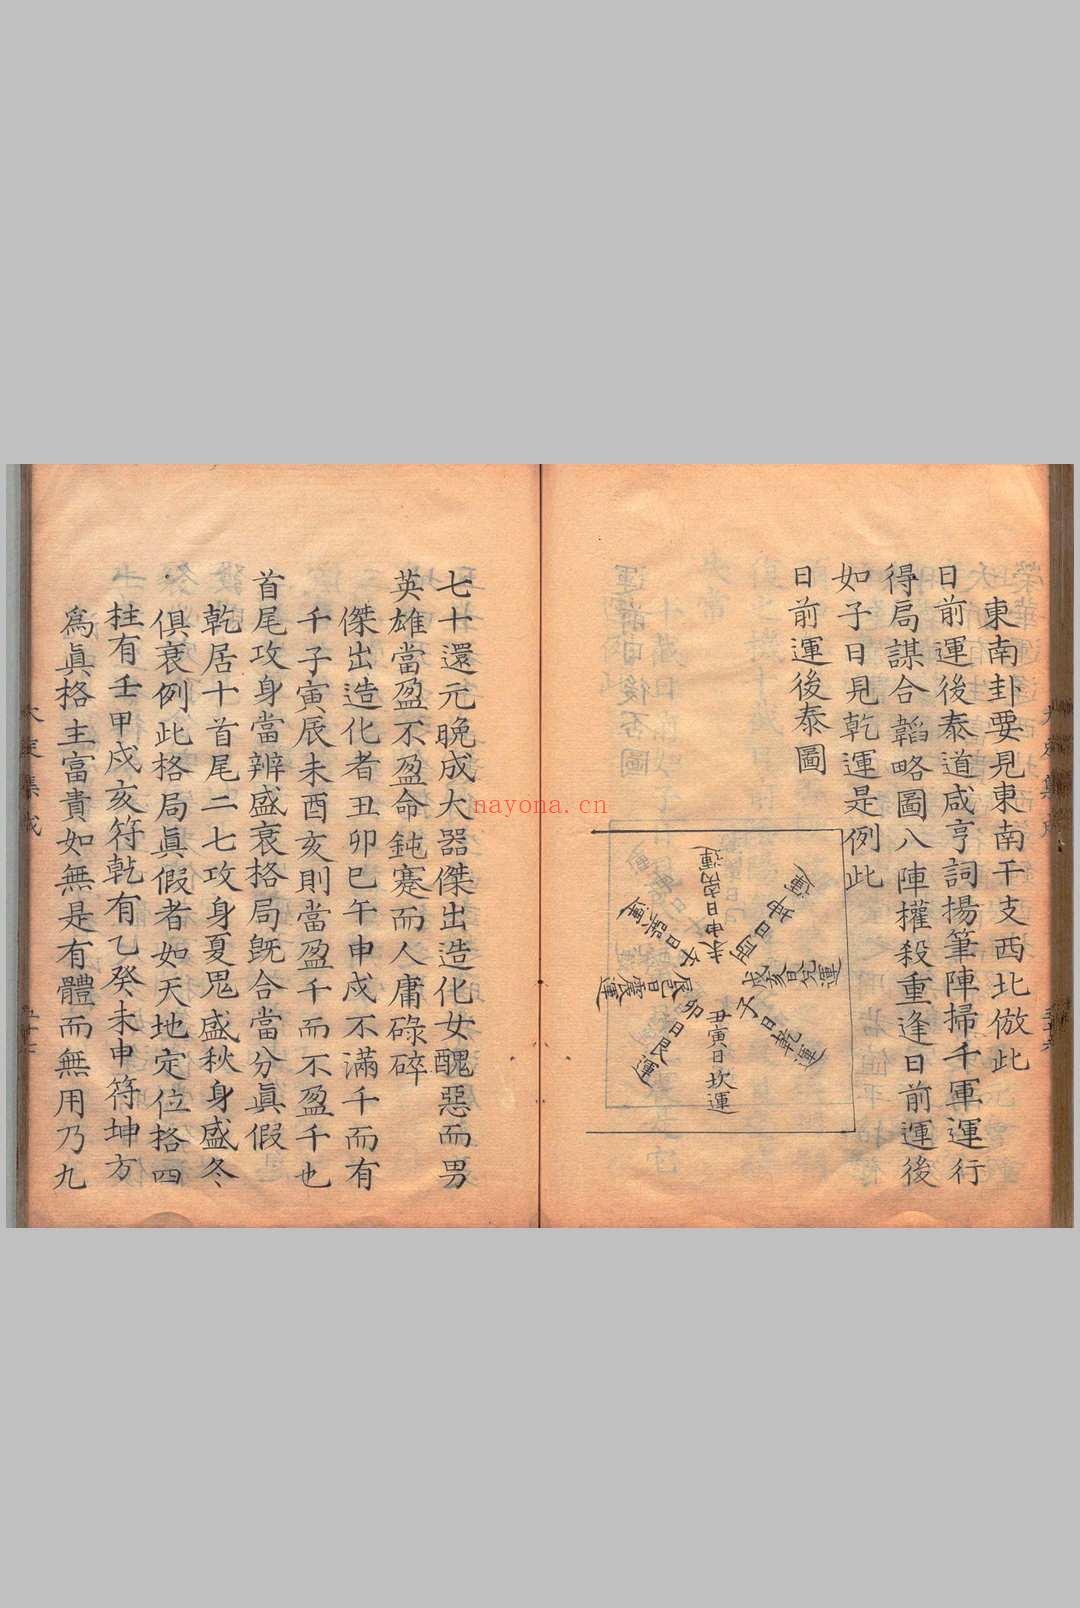 東南卦要見東南干支西北倣此
日前運後泰道咸亨詞揚筆陣掃千軍運行
得局謀合韜略圖八陣權殺重逢日前運後
如子日見乾運是例此
日前運後泰圖
坤運
酉日
戌亥日兌運
子日乾運
丑寅日坎運
卯日艮運
辰巳日震運
午日巽運
未申日离運
七十還元晩成大器傑出造化女醜惡而男
英雄當盈不盈命鈍蹇而人庸碌碎
傑出造化者丑卯巳午申戌不滿千而有
千子寅辰未酉亥則當盈千而不盈千也
首尾攻身當辨盛衰格局旣合當分眞假
乾居十首尾二七攻身夏鬼盛秋身盛冬
俱衰例此格局眞假者如天地定位格四
柱有壬甲戌亥符乾有乙癸未申符坤方
爲眞格主富貴如無是有體而無用乃九
大定集成
nayona.cn